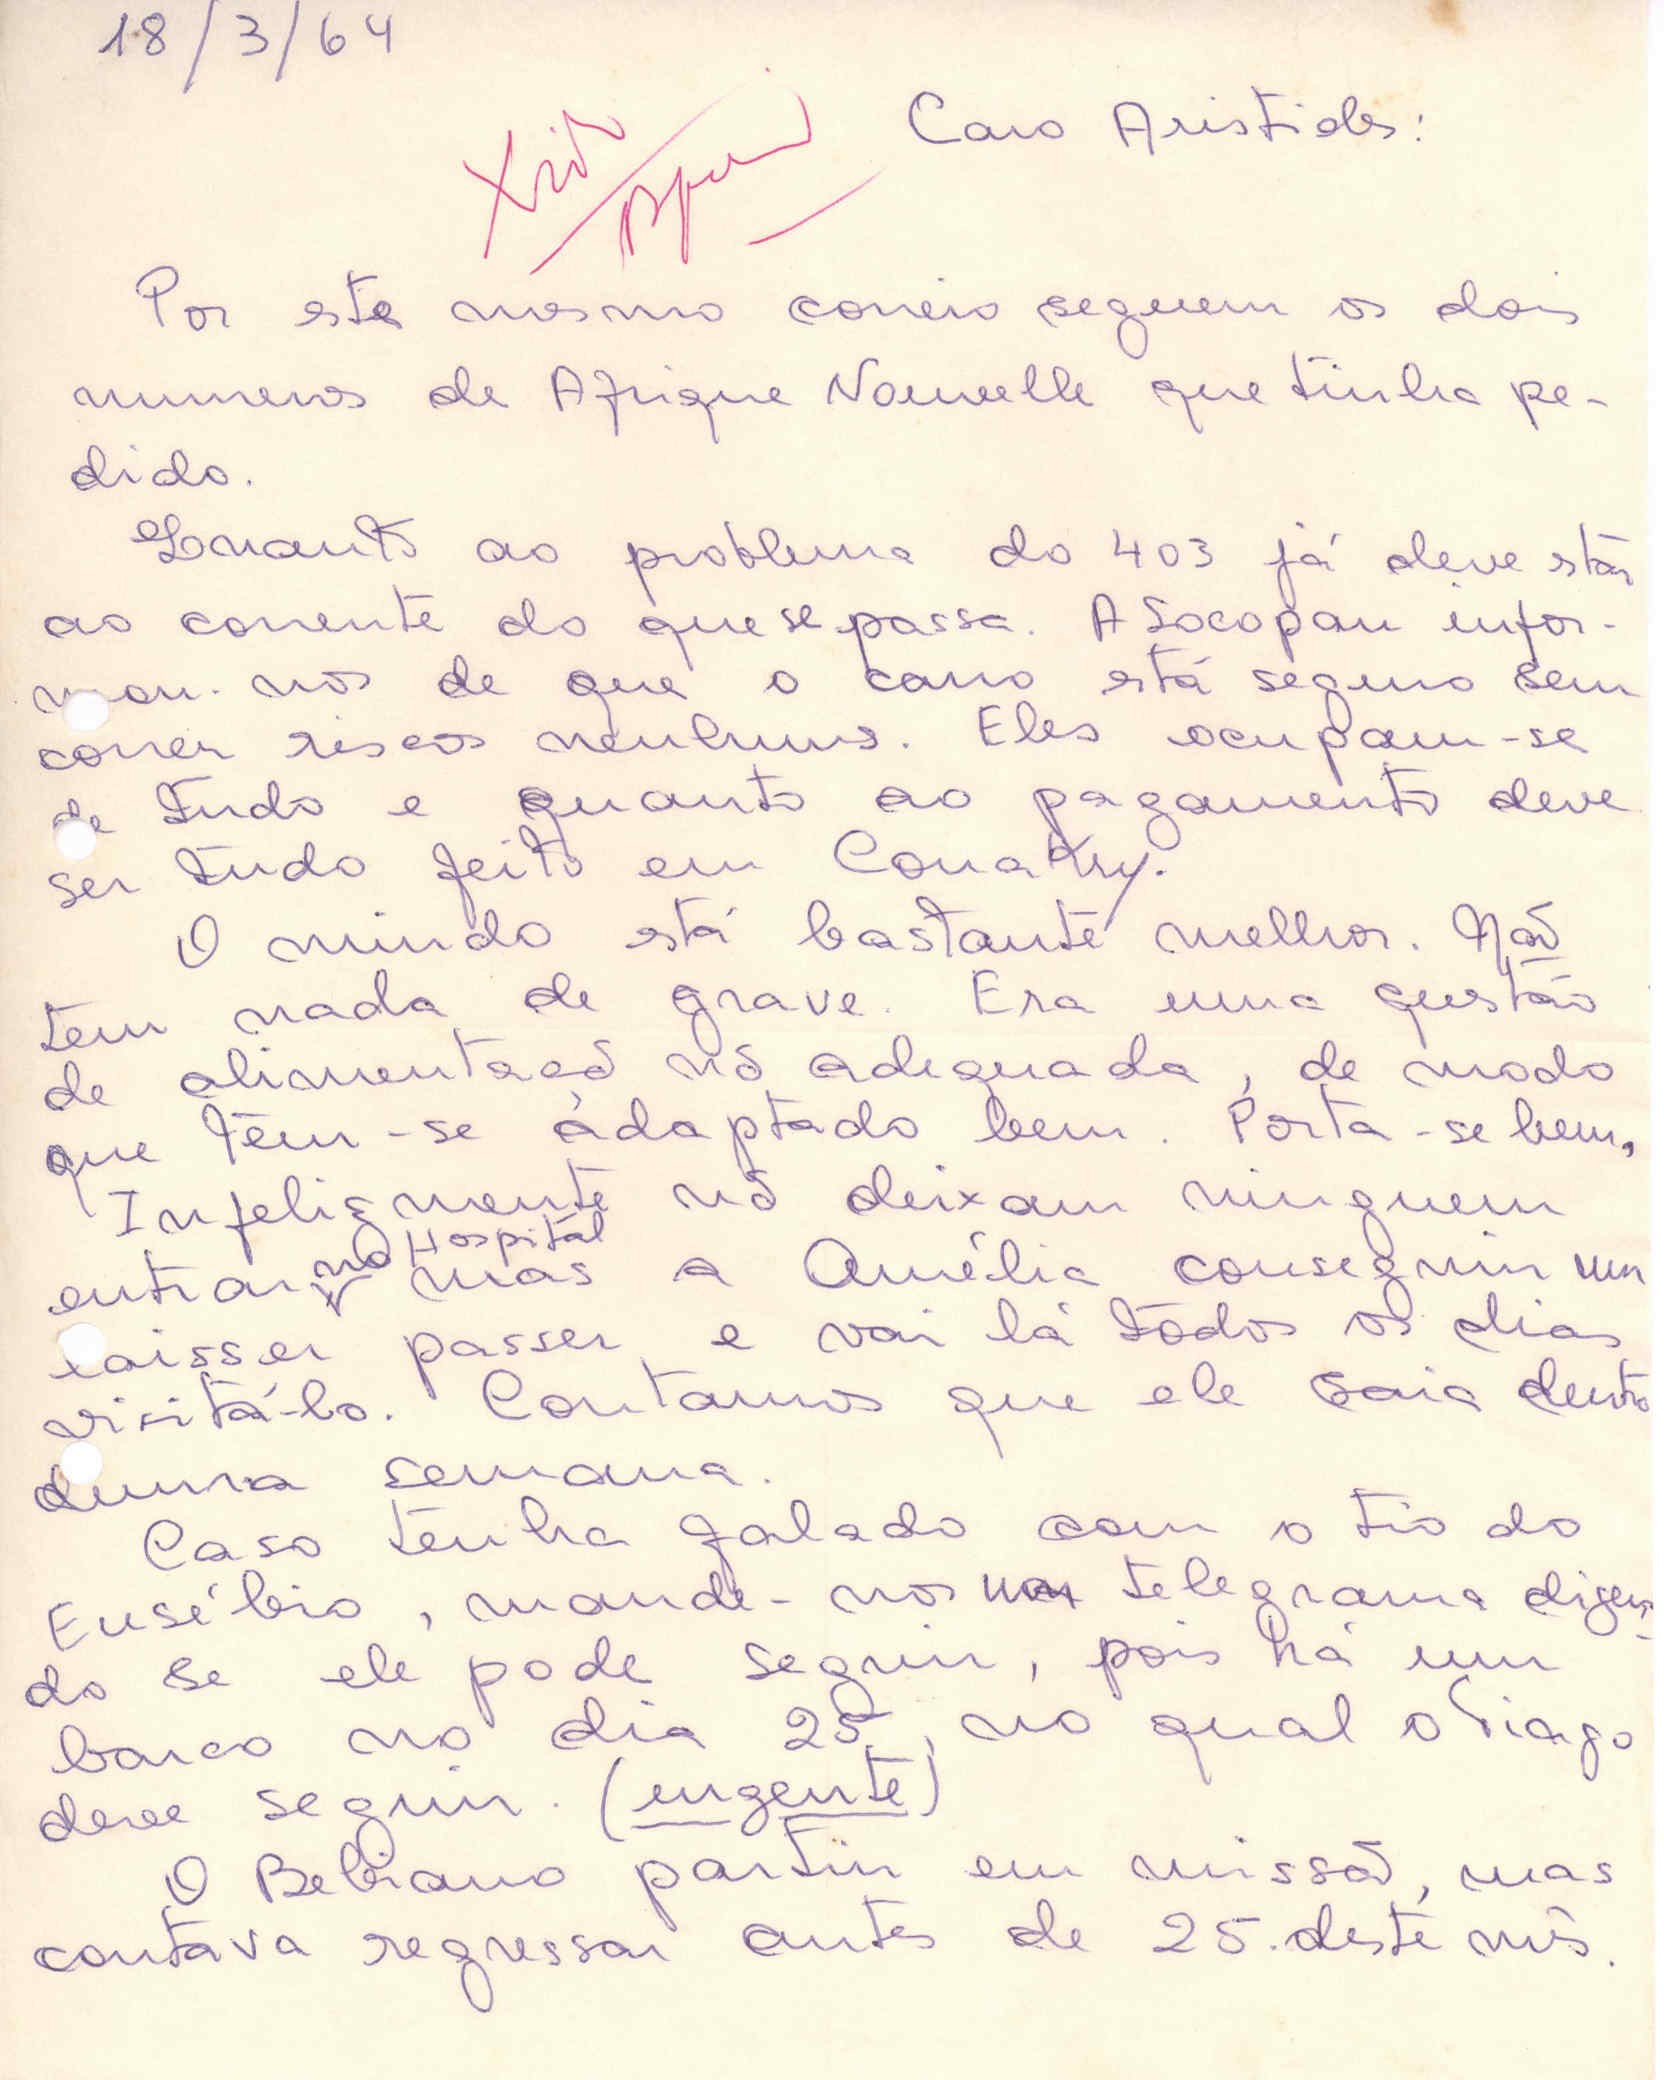 18/3/64
Caro Aristides:
Por este mesmo correio seguem os dois
numeros de Afrique Nouvelle que tinha pe-
dido.
Quanto ao problema do 403 já deve estar
ao corrente do que se passa. A Socopau infor-
mou-nos de que o carro está seguro sem
correr riscos nenhuns. Eles ocupam-se
de tudo e quanto ao pagamento deve
ser tudo feito em Conakry.
O mindo está bastante melhor. Não
tem nada de grave. Era uma questão
de alimentação nõ adequada, de modo
que têm-se adaptado bem. Porta-se bem.
Infelizmente nõ deixam ninguem
entrar no Hospital mas a Amélia conseguiu um
laisser passer e vai lá todos os dias
visitá-lo. Contamos que ele saia dentro
duma semana.
Caso tenha falado com o tio do
Eusébio, mande-nos um telegrama dizen-
do se ele pode seguir, pois há um
barco no dia 25, no qual o Tiago
deve seguir. (urgente)
O Bebiano partiu em missão, mas
contava regressar antes de 25 deste mês.